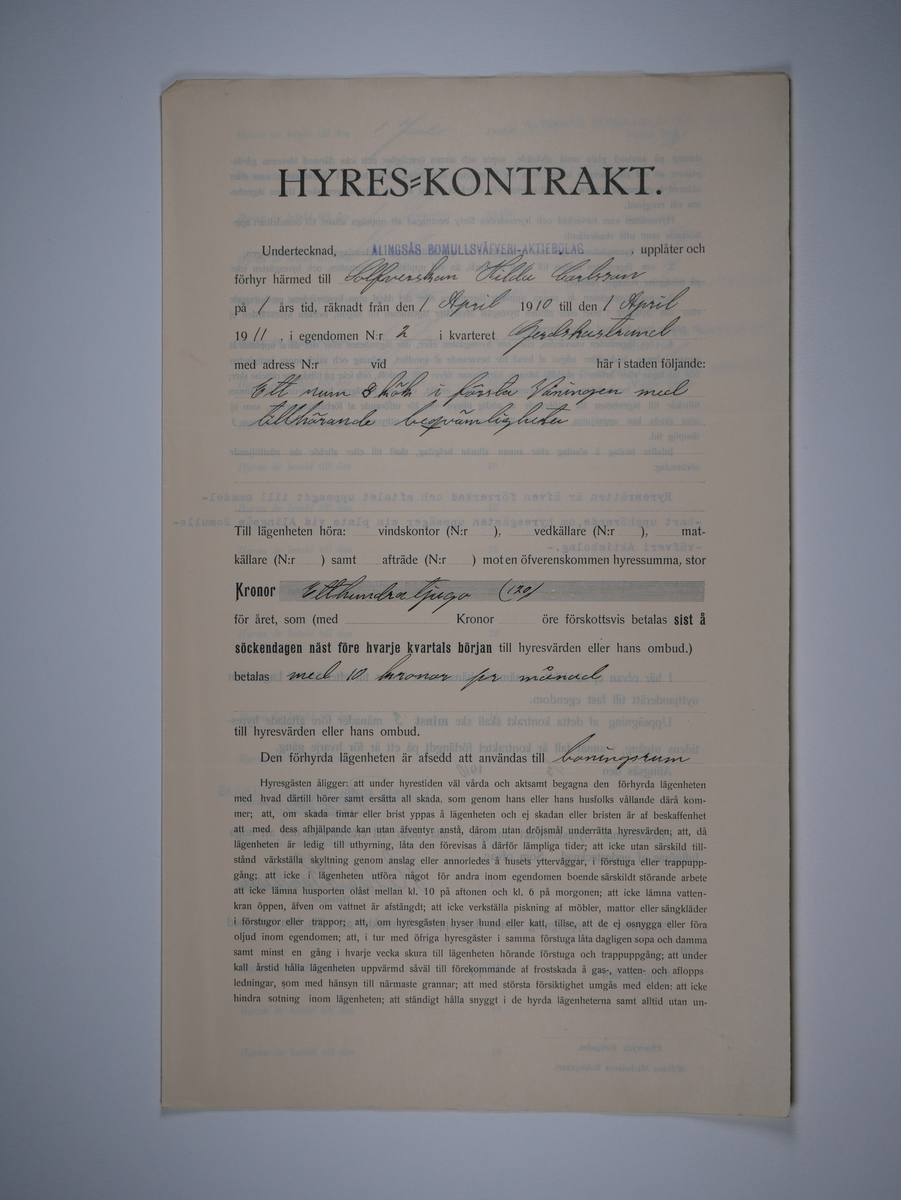 HYRES-KONTRAKT.
Undertecknad, ALINGSÅS BOMULLSVÄFVERI-AKTIEBOLAG, upplåter och
förhyr härmed till Hilda Carlsson
på 1 års tid, räknadt från den 1 April 1910 till den 1 April
1911, i egendomen N:r 2 i kvarteret
med adress N:r vid här i staden följande:
Ett rum & kök i första Våningen med
tillhörande beqvämligheter
Till lägenheten höra: vindskontor (N:r ), vedkällare (N:r ), mat-
källare (N:r ) samt afträde (N:r ) mot en öfverenskommen hyressumma, stor
Kronor Etthundratjugo (120)
för året, som (med Kronor öre förskottsvis betalas sist å
söckendagen näst före hvarje kvartals början till hyresvärden eller hans ombud.)
betalas med 10 kronor pr månad
till hyresvärden eller hans ombud.
Den förhyrda lägenheten är afsedd att användas till boningsrum
Hyresgästen åligger: att under hyrestiden väl vårda och aktsamt begagna den förhyrda lägenheten
med hvad därtill hörer samt ersätta all skada, som genom hans eller hans husfolks vållande därå kom-
mer; att, om skada timar eller brist yppas å lägenheten och ej skadan eller bristen är af beskaffenhet
att med dess afhjälpande kan utan äfventyr anstå, därom utan dröjsmål underrätta hyresvärden; att, då
lägenheten är ledig till uthyrning, låta den förevisas å därför lämpliga tider; att icke utan särskild till-
stånd värkställa skyltning genom anslag eller annorledes å husets yttervåggar, i förstuga eller trappupp-
gång; att icke i lägenheten utföra något för andra inom egendomen boende särskildt störande arbete
att icke lämna husporten olåst mellan kl. 10 på aftonen och kl. 6 på morgonen; att icke lämna vatten-
kran öppen, äfven om vattnet är afstängdt; att icke verkställa piskning af möbler, mattor eller sängkläder
i förstugor eller trappor; att, om hyresgästen hyser hund eller katt, tillse, att de ej osnygga eller föra
oljud inom egendomen; att, i tur med öfriga hyresgäster i samma förstuga låta dagligen sopa och damma
samt minst en gång i hvarje vecka skura till lägenheten hörande förstuga och trappuppgång; att under
kall årstid hålla lägenheten uppvärmd såväl till förekommande af frostskada å gas-, vatten- och aflopps
ledningar, som med hänsyn till närmaste grannar; att med största försiktighet umgås med elden: att icke
hindra sotning inom lägenheten; att ständigt hålla snyggt i de hyrda lägenheterna samt alltid utan un-